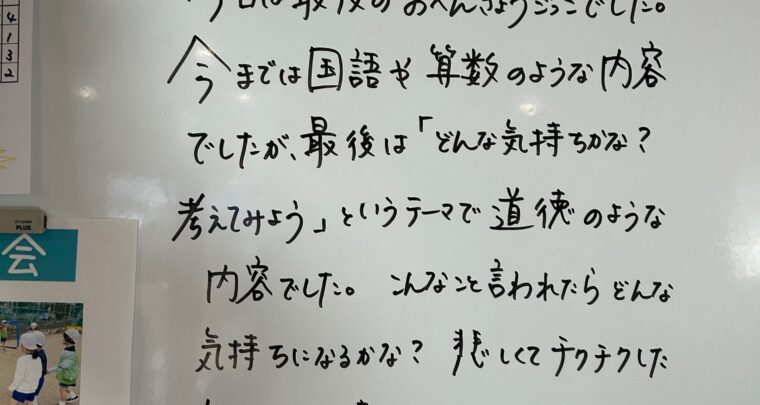 今日は最後のおべんきょうごっこでした。
今までは国語や算数のような内容
でしたが、最後は「どんな気持ちかな?
考えてみよう」というテーマで道徳のような
内容でした。こんなこと言われたらどんな
気持ちになるかな? 悲しくてチクチクした
4
1
3
2
PLUS
会